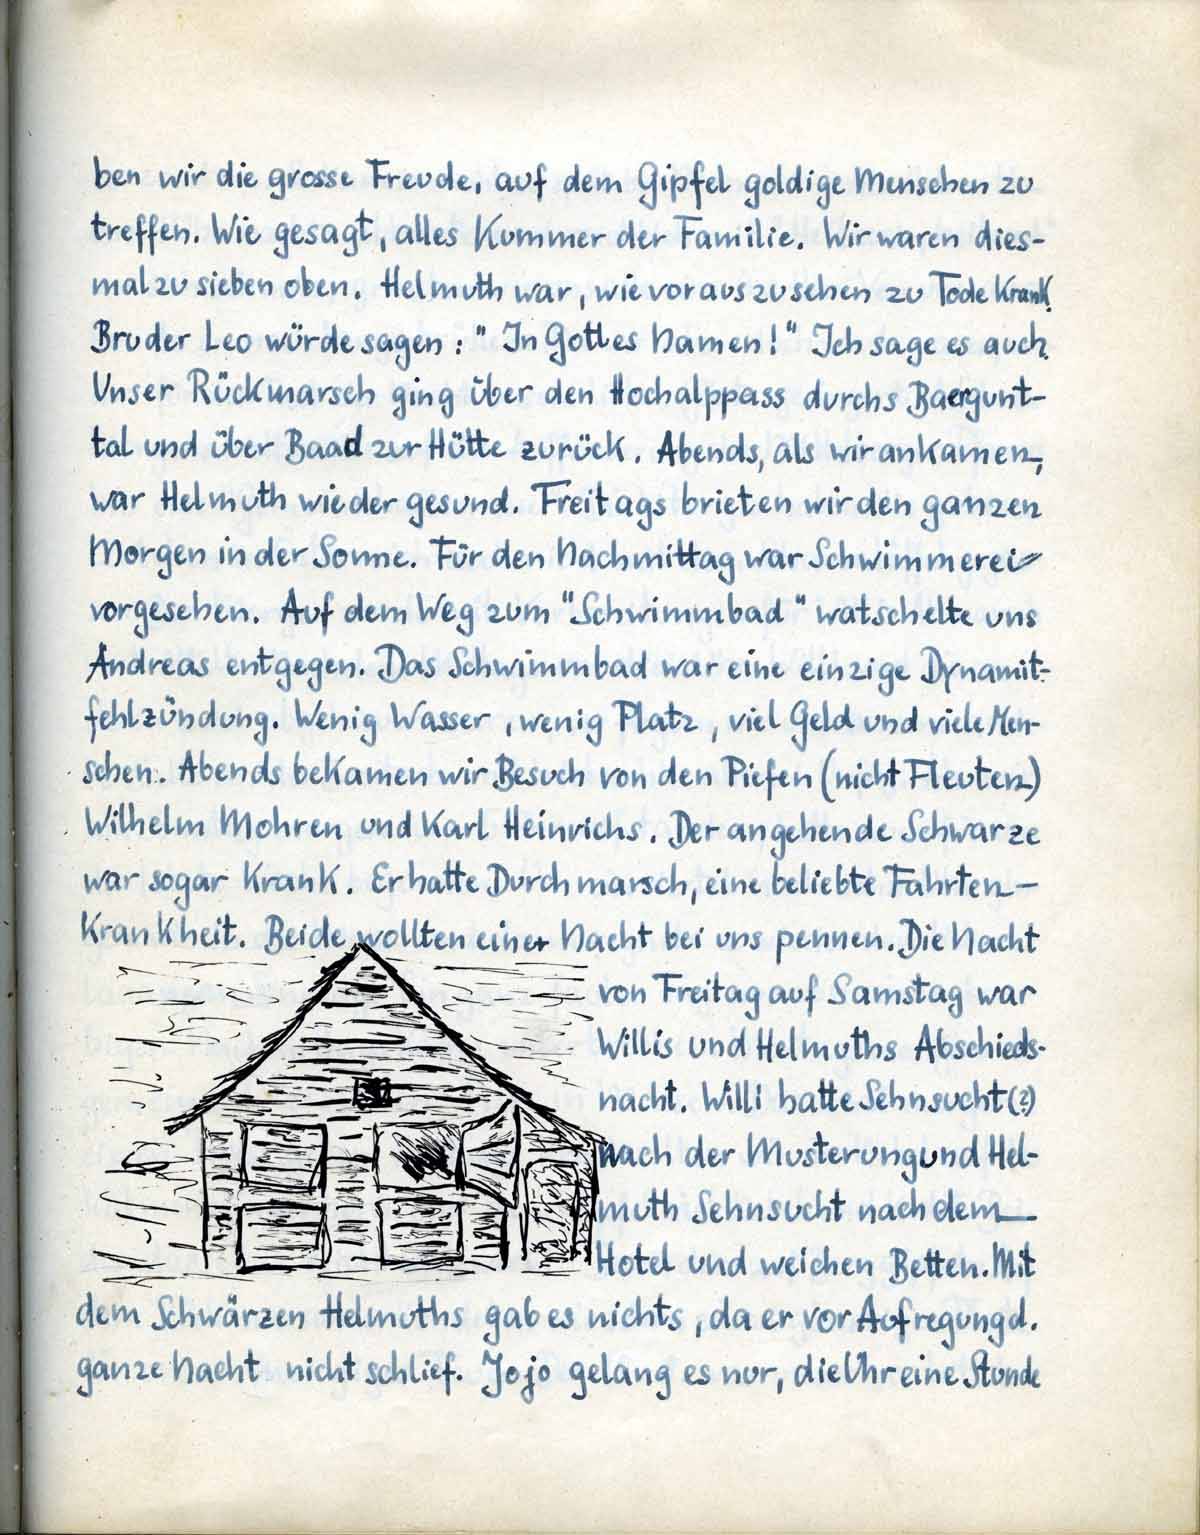 ben wir die grosse Freude, auf dem Gipfel goldige Menschen zu
treffen. Wie gesagt, alles Kummer der Familie. Wir waren dies-
mal zu sieben oben. Helmuth war, wie vorauszusehen zu Tode Krank.
Bruder Leo würde sagen: "In Gottes Namen!" Ich sage es auch.
Unser Rückmarsch ging über den Hochalppass durchs Baergunt-
tal und über Baad zur Hütte zurück. Abends, als wir ankamen,
war Helmuth wieder gesund. Freitags brieten wir den ganzen
Morgen in der Sonne. Für den Nachmittag war Schwimmerei
vorgesehen. Auf dem Weg zum "Schwimmbad" watschelte uns
Andreas entgegen. Das Schwimmbad war eine einzige Dynamit-
fehlzündung. Wenig Wasser, wenig Platz, viel Geld und viele Men-
schen. Abends bekamen wir Besuch von den Piefen (nicht Fleuten)
Wilhelm Mohren und Karl Heinrichs. Der angehende Schwarze
war sogar Krank. Er hatte Durchmarsch, eine beliebte Fahrten-
Krankheit. Beide wollten einer Nacht bei uns pennen. Die Nacht
von Freitag auf Samstag war
Willis und Helmuths Abschieds-
nacht. Willi hatte Sehnsucht (?)
nach der Musterung und Hel-
muth Sehnsucht nach dem
Hotel und weichen Betten. Mit
dem Schwärzen Helmuths gab es nichts, da er vor Aufregung d.
ganze Nacht nicht schlief. Jojo gelang es nur, die Uhr eine Stunde